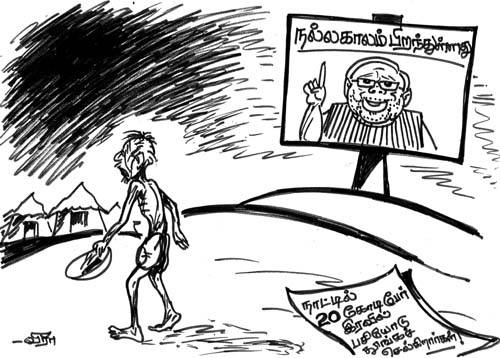 நல்லகாலம் பிறந்துள்ளது
நாட்டில்
20 கோடிபேர்
இரவில்
பசியோடு
தூங்கச்
செல்கிறார்கள்!